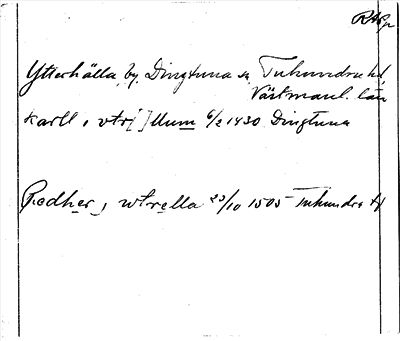 RAp
Ytterhälla, by, Dingtuna sn, Tuhundra hd,
Västmanl. län
karll, vtr[ ]llum 6/2 1430 Dingtuna
Redher, wtrella 23/10 1505 Tuhundra hd